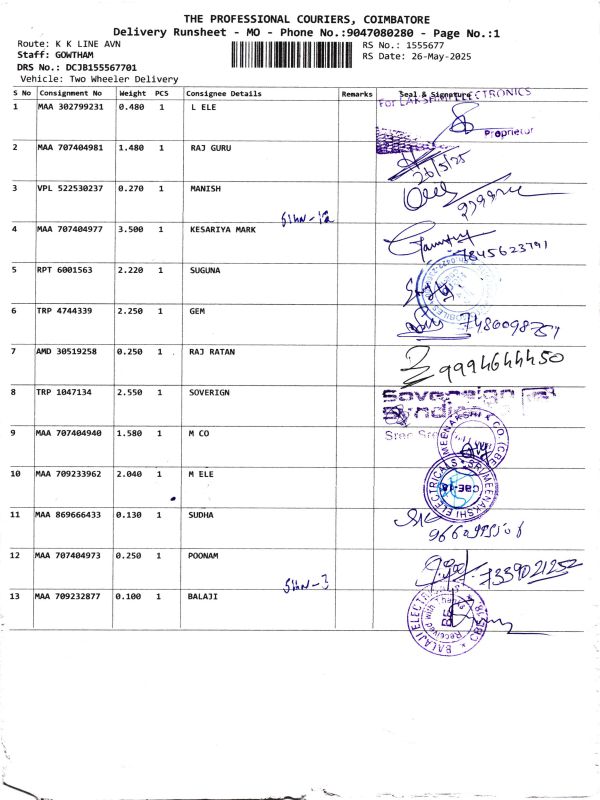 THE PROFESSIONAL COURIERS, COIMBATORE
Delivery Runsheet - MO - Phone No.:9047080280 - Page No.:1
Route: K K LINE AVN
RS No.: 1555677
Staff: GOWTHAM
RS Date: 26-May-2025
DRS No.: DCJB155567701
Vehicle: Two Wheeler Delivery
S No Consignment No Weight PCS Consignee Details Remarks Seal & Signature
For LAKSHMI ELECTRONICS
1 MAA 302799231 0.480 1 L ELE
Proprietor
2 MAA 707404981 1.480 1 RAJ GURU
26/5/25
3 VPL 522530237 0.270 1 MANISH
4 MAA 707404977 3.500 1 KESARIYA MARK
7845623791
5 RPT 6001563 2.220 1 SUGUNA
6 TRP 4744339 2.250 1 GEM
7 AMD 30519258 0.250 1 RAJ RATAN
9994644450
8 TRP 1047134 2.550 1 SOVERIGN
Sovereign
Syndicate
9 MAA 707404940 1.580 1 M CO
10 MAA 709233962 2.040 1 M ELE
SRI MEENAKSHI ELECTRICALS
CBE-18
11 MAA 869666433 0.130 1 SUDHA
12 MAA 707404973 0.250 1 POONAM
7339021252
13 MAA 709232877 0.100 1 BALAJI
BALAJI ELECTRICALS
Received with Thanks